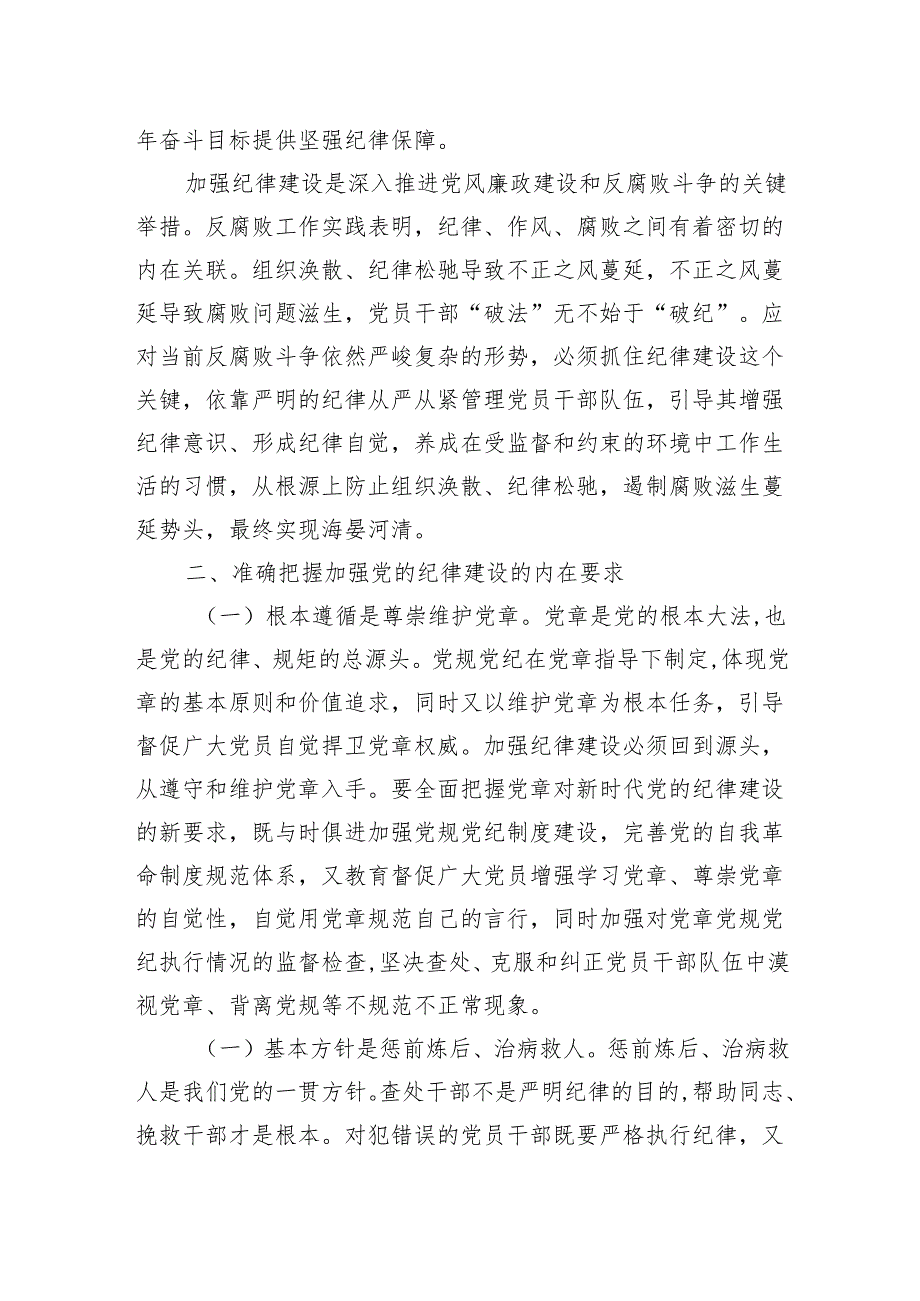 年奋斗目标提供坚强纪律保障。
加强纪律建设是深入推进党风廉政建设和反腐败斗争的关键
举措。反腐败工作实践表明，纪律、作风、腐败之间有着密切的
内在关联。组织涣散、纪律松驰导致不正之风蔓延，不正之风蔓
延导致腐败问题滋生，党员干部“破法”无不始于“破纪”。应
对当前反腐败斗争依然严峻复杂的形势，必须抓住纪律建设这个
关键，依靠严明的纪律从严从紧管理党员干部队伍，引导其增强
纪律意识、形成纪律自觉，养成在受监督和约束的环境中工作生
活的习惯，从根源上防止组织涣散、纪律松驰，遏制腐败滋生蔓
延势头，最终实现海晏河清。
二、准确把握加强党的纪律建设的内在要求
（一）根本遵循是尊崇维护党章。党章是党的根本大法,也
是党的纪律、规矩的总源头。党规党纪在党章指导下制定,体现党
章的基本原则和价值追求，同时又以维护党章为根本任务，引导
督促广大党员自觉捍卫党章权威。加强纪律建设必须回到源头，
从遵守和维护党章入手。要全面把握党章对新时代党的纪律建设
的新要求，既与时俱进加强党规党纪制度建设，完善党的自我革
命制度规范体系，又教育督促广大党员增强学习党章、尊崇党章
的自觉性，自觉用党章规范自己的言行，同时加强对党章党规党
纪执行情况的监督检查,坚决查处、克服和纠正党员干部队伍中漠
视党章、背离党规等不规范不正常现象。
（一）基本方针是惩前炼后、治病救人。惩前炼后、治病救
人是我们党的一贯方针。查处干部不是严明纪律的目的,帮助同志、
挽救干部才是根本。对犯错误的党员干部既要严格执行纪律，又